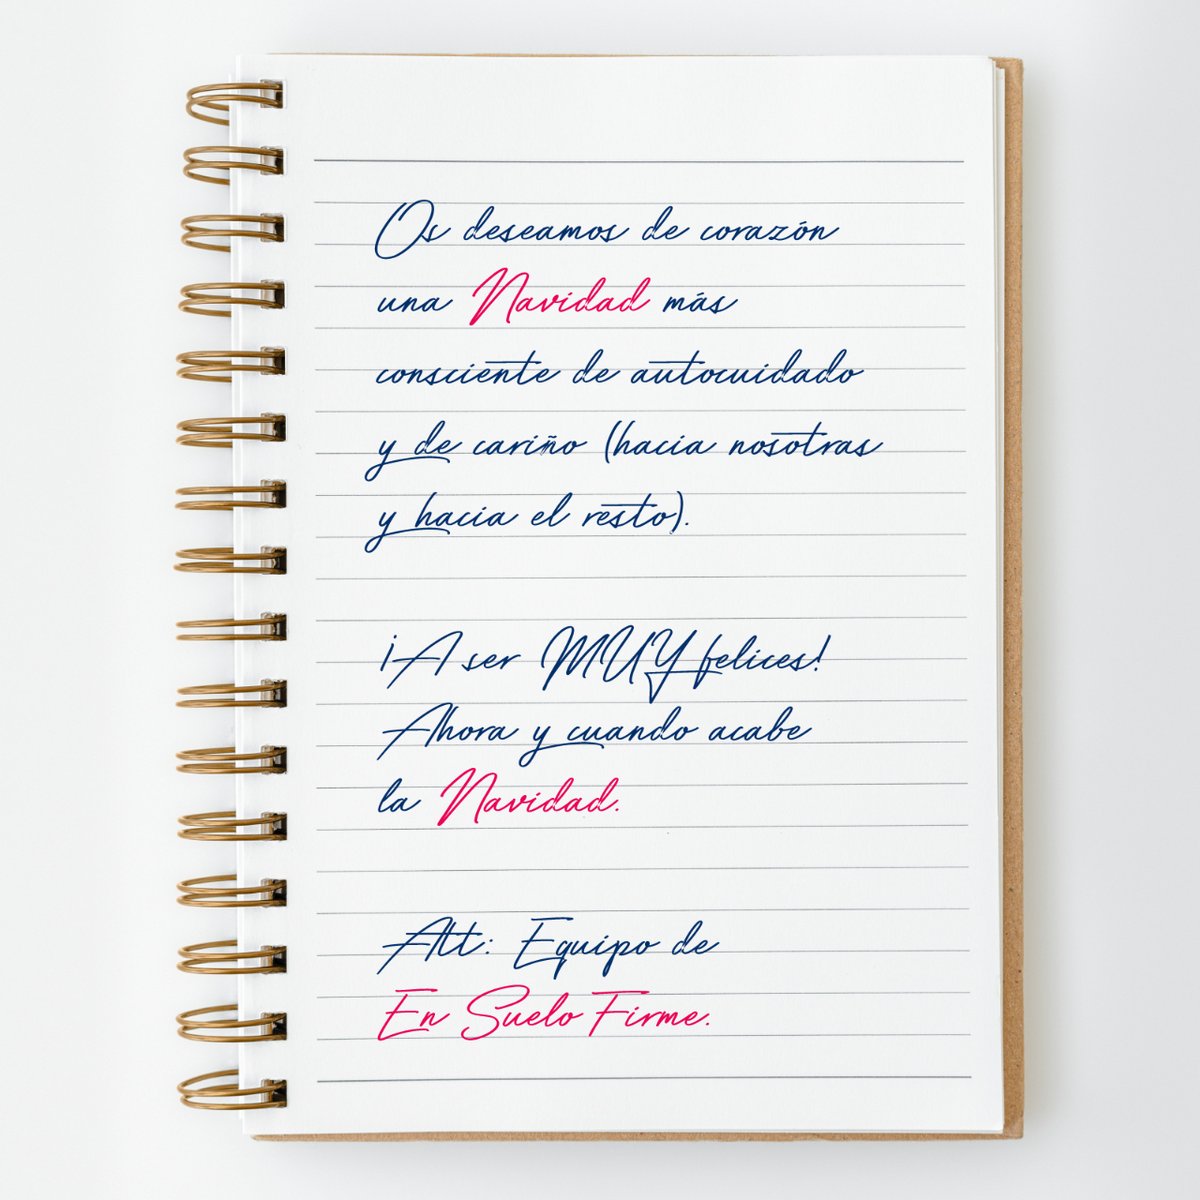 Os deseamos de corazón
una Navidad más
consciente de autocuidado
y de cariño (hacia nosotras
y hacia el resto).
¡A ser MUY felices!
Ahora y cuando acabe
la Navidad.
Att: Equipo de
En Suelo Firme.